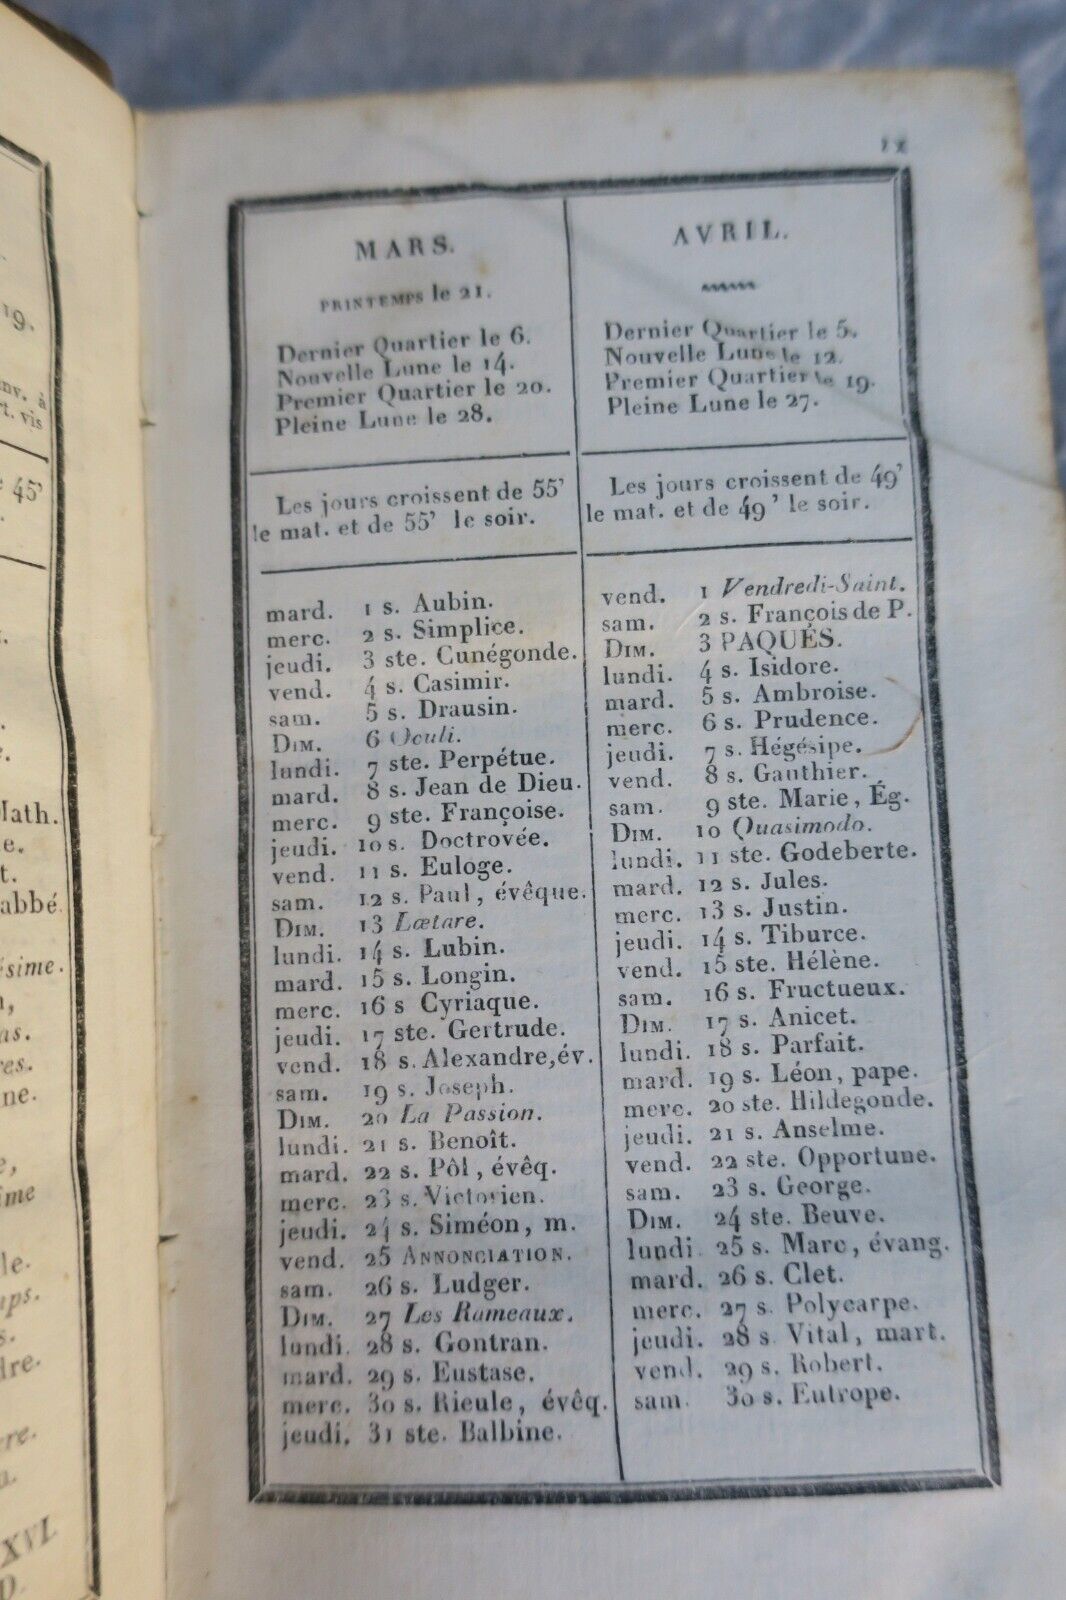 IX
MARS.
PRINTEMPS le 21.
Dernier Quartier le 6.
Nouvelle Lune le 14.
Premier Quartier le 20.
Pleine Lune le 28.
Les jours croissent de 55'
le mat. et de 55' le soir.
mard. 1 s. Aubin.
merc. 2 s. Simplice.
jeudi. 3 ste. Cunégonde.
vend. 4 s. Casimir.
sam. 5 s. Drausin.
DIM. 6 Oculi.
lundi. 7 ste. Perpétue.
mard. 8 s. Jean de Dieu.
merc. 9 ste. Françoise.
jeudi. 10 s. Doctrovée.
vend. 11 s. Euloge.
sam. 12 s. Paul, évêque.
DIM. 13 Lœtare.
lundi. 14 s. Lubin.
mard. 15 s. Longin.
merc. 16 s Cyriaque.
jeudi. 17 ste. Gertrude.
vend. 18 s. Alexandre, év.
sam. 19 s. Joseph.
DIM. 20 La Passion.
lundi. 21 s. Benoît.
mard. 22 s. Pôl, évêq.
merc. 23 s. Victorien.
jeudi. 24 s. Siméon, m.
vend. 25 ANNONCIATION.
sam. 26 s. Ludger.
DIM. 27 Les Rameaux.
lundi. 28 s. Gontran.
mard. 29 s. Eustase.
merc. 30 s. Rieule, évêq.
jeudi. 31 ste. Balbine.
AVRIL.
Dernier Quartier le 5.
Nouvelle Lune le 12.
Premier Quartier le 19.
Pleine Lune le 27.
Les jours croissent de 49'
le mat. et de 49' le soir.
vend. 1 Vendredi-Saint.
sam. 2 s. François de P.
DIM. 3 PAQUES.
lundi. 4 s. Isidore.
mard. 5 s. Ambroise.
merc. 6 s. Prudence.
jeudi. 7 s. Hégésipe.
vend. 8 s. Gauthier.
sam. 9 ste. Marie, Ég.
DIM. 10 Quasimodo.
lundi. 11 ste. Godeberte.
mard. 12 s. Jules.
merc. 13 s. Justin.
jeudi. 14 s. Tiburce.
vend. 15 ste. Hélène.
sam. 16 s. Fructueux.
DIM. 17 s. Anicet.
lundi. 18 s. Parfait.
mard. 19 s. Léon, pape.
merc. 20 ste. Hildegonde.
jeudi. 21 s. Anselme.
vend. 22 ste. Opportune.
sam. 23 s. George.
DIM. 24 ste. Beuve.
lundi 25 s. Marc, évang.
mard. 26 s. Clet.
merc. 27 s. Polycarpe.
jeudi. 28 s Vital, mart.
vend. 29 s. Robert.
sam. 30 s. Eutrope.